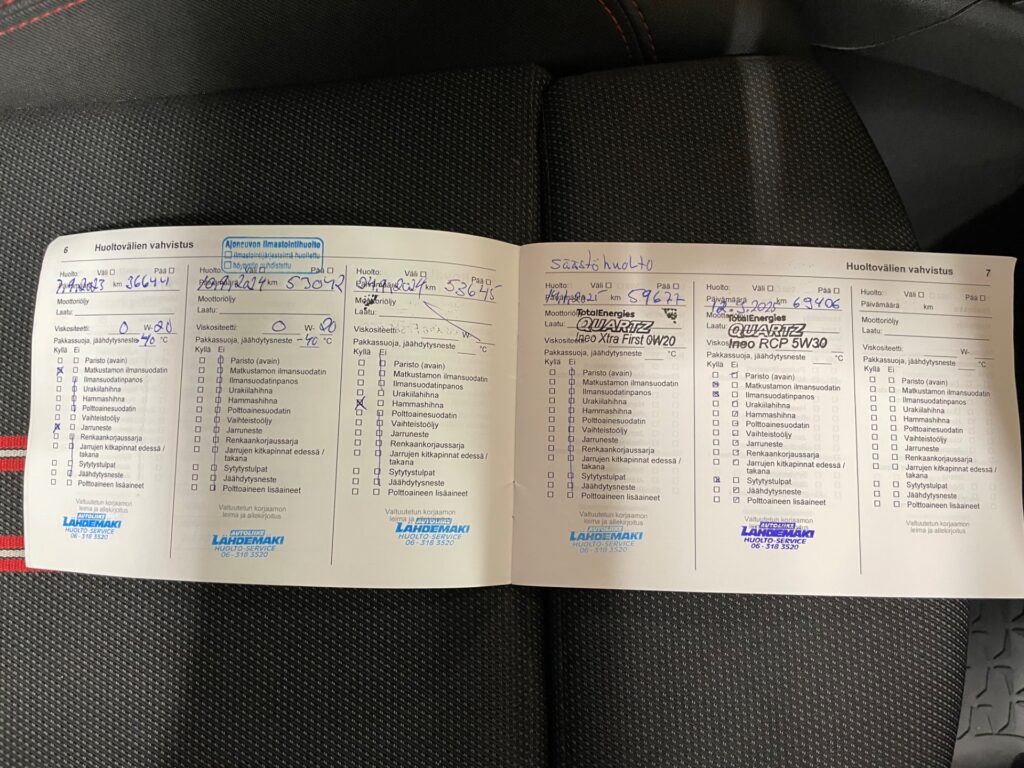 6 Huoltovälien vahvistus
Ajoneuvon ilmastointihuolto
ilmastointijärjestelmä huollettu
höyrystin puhdistettu
Huolto: Väli Pää
7.9.2023 km 36644
Moottoriöljy
Laatu:
Viskositeetti: 0 W-20
Pakkassuoja, jäähdytysneste -40 °C
Kyllä Ei
Paristo (avain)
Matkustamon ilmansuodatin
Ilmansuodatinpanos
Urakiilahihna
Hammashihna
Polttoainesuodatin
Vaihteistoöljy
Jarruneste
Renkaankorjaussarja
Jarrujen kitkapinnat edessä /
takana
Sytytystulpat
Jäähdytysneste
Polttoaineen lisäaineet
Valtuutetun korjaamon
leima ja allekirjoitus
AUTOLIIKE
LÄHDEMÄKI
HUOLTO-SERVICE
06-318 3520
Huolto: Väli Pää
9.2024 km 53042
Moottoriöljy
Laatu:
Viskositeetti: 0 W-20
Pakkassuoja, jäähdytysneste -40 °C
Kyllä Ei
Paristo (avain)
Matkustamon ilmansuodatin
Ilmansuodatinpanos
Urakiilahihna
Hammashihna
Polttoainesuodatin
Vaihteistoöljy
Jarruneste
Renkaankorjaussarja
Jarrujen kitkapinnat edessä /
takana
Sytytystulpat
Jäähdytysneste
Polttoaineen lisäaineet
Valtuutetun korjaamon
leima ja allekirjoitus
AUTOLIIKE
LÄHDEMÄKI
HUOLTO-SERVICE
06-318 3520
Huolto: Väli Pää
9.2024 km 53645
Moottoriöljy
Laatu:
Viskositeetti: W-
Pakkassuoja, jäähdytysneste °C
Kyllä Ei
Paristo (avain)
Matkustamon ilmansuodatin
Ilmansuodatinpanos
Urakiilahihna
Hammashihna
Polttoainesuodatin
Vaihteistoöljy
Jarruneste
Renkaankorjaussarja
Jarrujen kitkapinnat edessä /
takana
Sytytystulpat
Jäähdytysneste
Polttoaineen lisäaineet
Valtuutetun korjaamon
leima ja allekirjoitus
AUTOLIIKE
LÄHDEMÄKI
HUOLTO-SERVICE
06-318 3520
Huoltovälien vahvistus 7
säästöhuolto
Huolto: Väli Pää
km 59677
Moottoriöljy
Laatu:
TotalEnergies
QUARTZ
Ineo Xtra First 0W20
Viskositeetti:
Pakkassuoja, jäähdytysneste °C
Kyllä Ei
Paristo (avain)
Matkustamon ilmansuodatin
Ilmansuodatinpanos
Urakiilahihna
Hammashihna
Polttoainesuodatin
Vaihteistoöljy
Jarruneste
Renkaankorjaussarja
Jarrujen kitkapinnat edessä /
takana
Sytytystulpat
Jäähdytysneste
Polttoaineen lisäaineet
Valtuutetun korjaamon
leima ja allekirjoitus
AUTOLIIKE
LÄHDEMÄKI
HUOLTO-SERVICE
06-318 3520
Huolto: Väli Pää
Päivämäärä 2025 km 69406
Moottoriöljy
Laatu:
TotalEnergies
QUARTZ
Ineo RCP 5W30
Viskositeetti:
Pakkassuoja, jäähdytysneste °C
Kyllä Ei
Paristo (avain)
Matkustamon ilmansuodatin
Ilmansuodatinpanos
Urakiilahihna
Hammashihna
Polttoainesuodatin
Vaihteistoöljy
Jarruneste
Renkaankorjaussarja
Jarrujen kitkapinnat edessä /
takana
Sytytystulpat
Jäähdytysneste
Polttoaineen lisäaineet
Valtuutetun korjaamon
leima ja allekirjoitus
AUTOLIIKE
LÄHDEMÄKI
HUOLTO-SERVICE
06-318 3520
Huolto: Väli Pää
Päivämäärä km
Moottoriöljy
Laatu:
Viskositeetti: W-
Pakkassuoja, jäähdytysneste °C
Kyllä Ei
Paristo (avain)
Matkustamon ilmansuodatin
Ilmansuodatinpanos
Urakiilahihna
Hammashihna
Polttoainesuodatin
Vaihteistoöljy
Jarruneste
Renkaankorjaussarja
Jarrujen kitkapinnat edessä /
takana
Sytytystulpat
Jäähdytysneste
Polttoaineen lisäaineet
Valtuutetun korjaamon
leima ja allekirjoitus